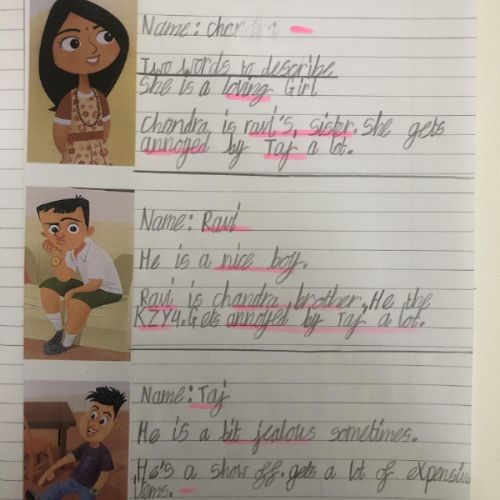 Name: chandra
Two words to describe
She is a loving Girl
Chandra, is ravi's, sister. she gets
annoyed by Taj a lot.
Name: Ravi
He is a nice boy.
Ravi is chandra brother. He the
KZY4. Gets annoyed by Taj a lot.
Name: Taj
He is a bit jealous sometimes.
He's a show off. gets a lot of expensive